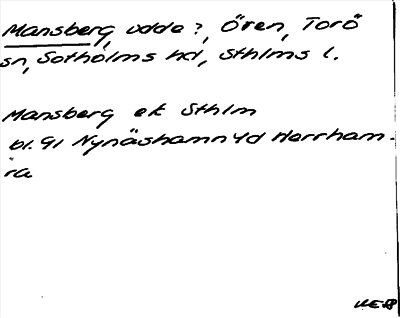 Mansberg, udde ?, Ören, Torö
sn, Sotholms hd, Sthlms l.
Mansberg ek Sthlm
bl. 91 Nynäshamn 4d Herrham-
ra